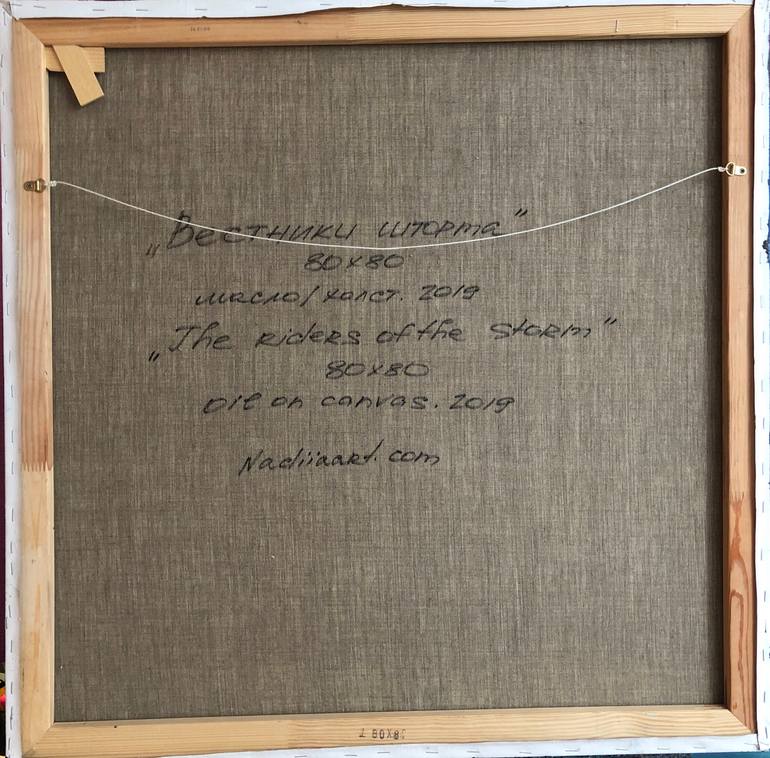 „Вестники шторма"
80x80
масло/холст. 2019
„The riders of the storm"
80x80
oil on canvas. 2019
Nadiiaart.com
80X80